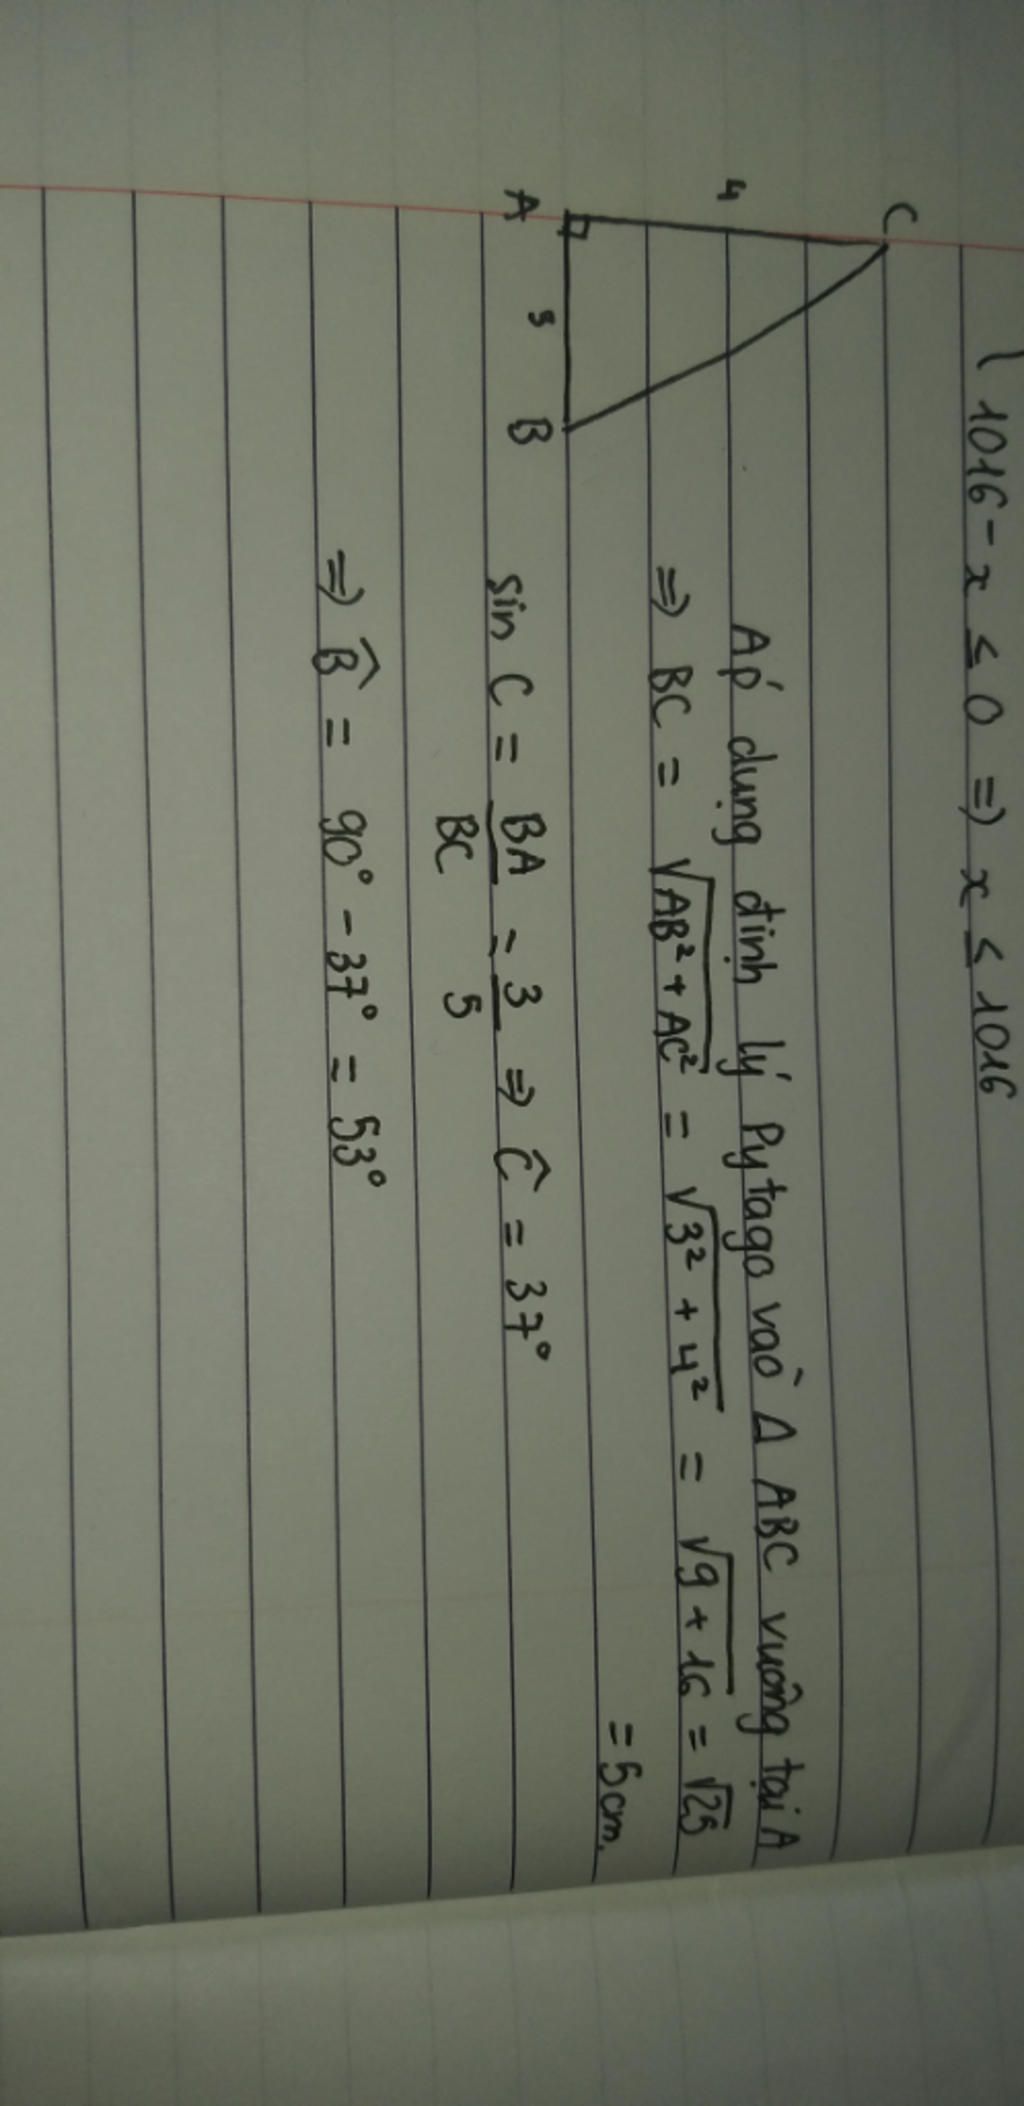 1016 - x ≤ 0 => x ≤ 1016
C
4
A
3
B
Áp dụng định lý Pytago vào Δ ABC vuông tại A
=> BC = √(AB² + AC²) = √(3² + 4²) = √(9 + 16) = √25
= 5cm.
sin C = BA/BC = 3/5 => Ĉ = 37°
=> B̂ = 90° - 37° = 53°